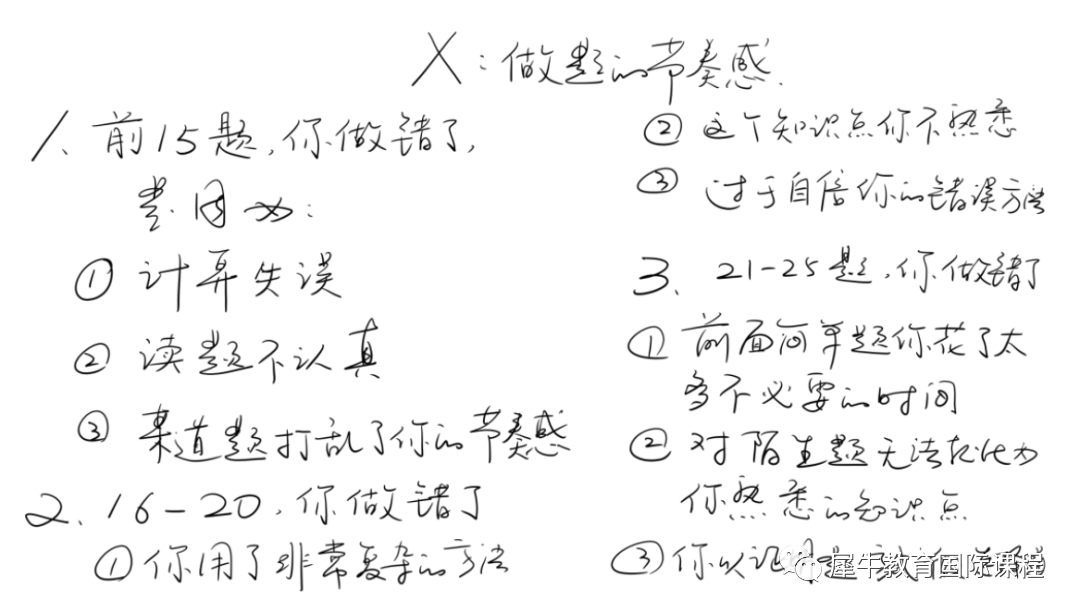 X：做题的节奏感.
1、前15题，你做错了，
是因为：
① 计算失误
② 读题不认真
③ 某道题打乱了你的节奏感
2、16-20，你做错了
① 你用了非常复杂的方法
② 这个知识点你不熟悉
③ 过于自信你的错误方法
3、21-25题，你做错了
① 前面简单题你花了太
多不必要的时间
② 对陌生题无法转化为
你熟悉的知识点
③ 你以
犀牛教育国际课程